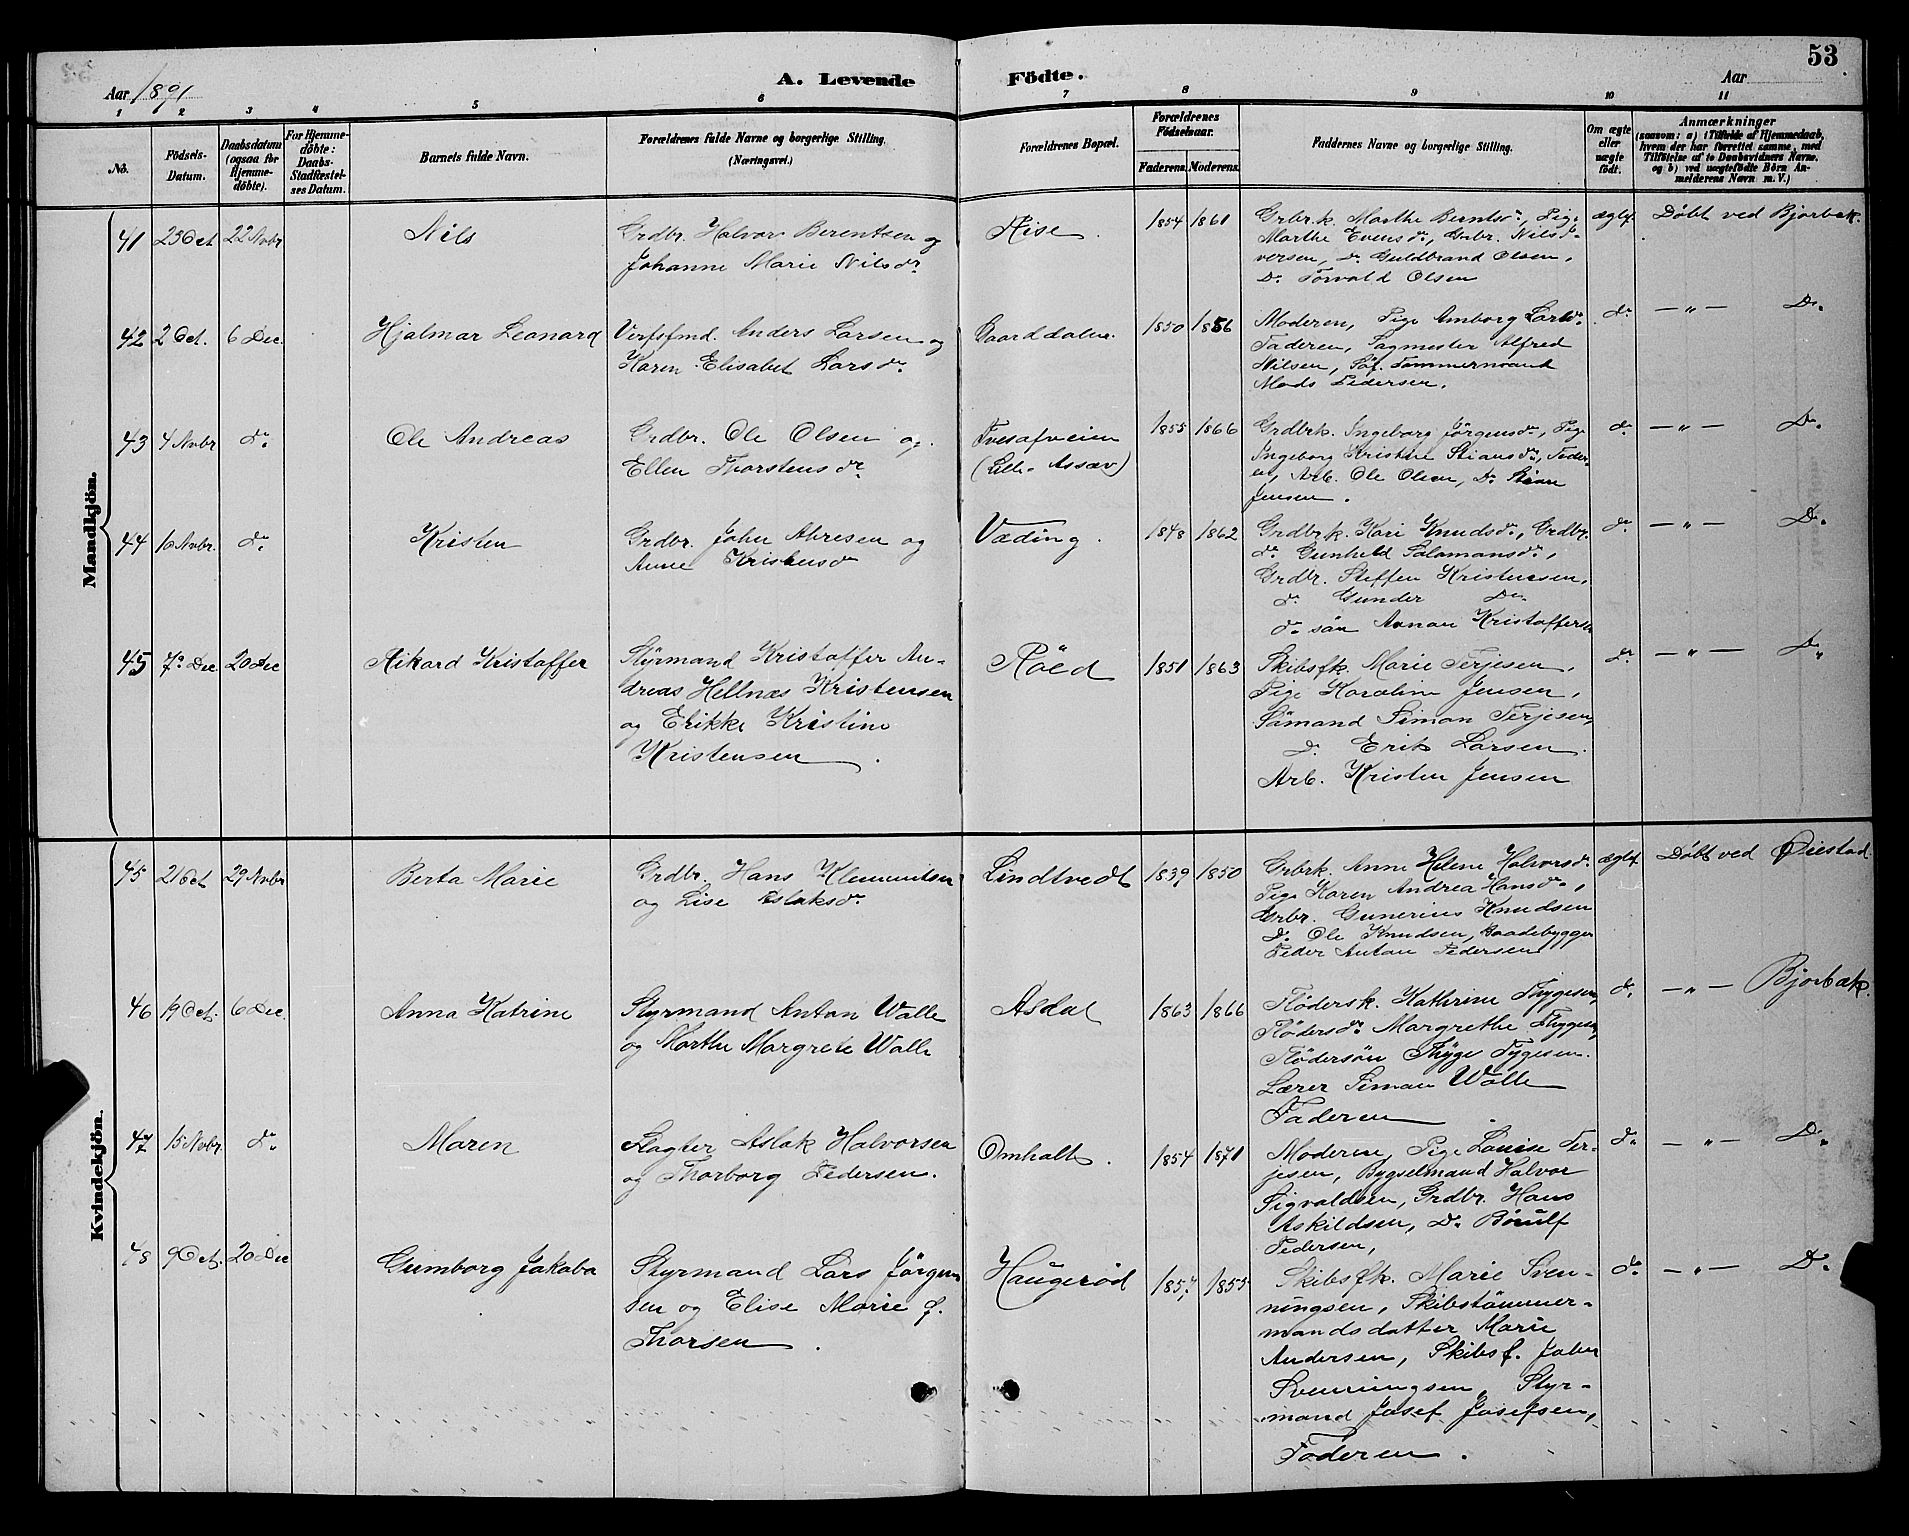 53
A. Levende Födte.
Aar 1891
Aar
1 2 3 4 5 6 7 8 9 10 11
No.
Födsels-Datum.
Daabsdatum (ogsaa for Hjemmedöbte).
For Hjemmedöbte: Daabs-Stadfæstelses Datum.
Barnets fulde Navn.
Forældrenes fulde Navne og borgerlige Stilling. (Næringsvei.)
Forældrenes Bopæl.
Forældrenes Födselsaar.
Faderens. Moderens.
Faddernes Navne og borgerlige Stilling.
Om ægte eller uægte födt.
Anmærkninger
(saasom: a) i Tilfælde af Hjemmedaab, hvem der har forrettet samme, med Tilföielse af to Daabsvidners Navne. og b) ved uægtefödte Börn Anmelderens Navn m. V.)
Mandkjön.
41 25 Oct 22 Nvbr Nils
Grdbr. Halvor Berentsen og
Johanne Marie Nilsdr.
Hise. 1854 1861
Grbr.k. Marthe Berntsdr., Pige
Marthe Evensdr., Grbr. Nils I-
versen, Do. Guldbrand Olsen,
Do. Torvald Olsen
ægtef. Döbt ved Bjorbæk.
42 2 Oct. 6 Dec. Hjalmar Leonard
Verfsfmd. Anders Larsen og
Karen Elisabet Larsdr.
Gaarddalen. 1850 1856
Moderen, Pige Amborg Larsdr.
Faderen, Sagmester Alfred
Nilsen, Söf. Tömmermand
Mads Pedersen.
do. — " — Do.
43 4 Nvbr do. Ole Andreas
Grdbr. Ole Olsen og
Ellen Thorstensdr.
Tvesafveien
(Lille-Assæv)
1855 1866
Grdbrk. Ingeborg Jörgensdr., Pige
Ingeborg Kristine Stiansdr., Fader-
en, Arb. Ole Olsen, Do. Stian
Jensen.
do. — " — Do.
44 16 Nvbr. do. Kristen
Grdbr. John Ahresen og
Anne Kristensd
Væding. 1848 1862
Grdbr.k. Kari Knudsdr., Grdbr.
dr. Gunhild Salamonsdr.,
Grdbr. Steffen Kristensen,
do. Gunder Do.
do. sön Annan Kristoffersen
do. — " — Do.
45 7de Dec 20 Dec Rikard Kristoffer
Styrmand Kristoffer An-
dreas Hellnæs Kristensen
og Erikke Kristine
Kristensen.
Röed 1851 1863
Skibsfk. Marie Terjesen,
Pige Karoline Jensen,
Sömand Simon Terjesen,
Do. Erik Larsen.
Arb. Kristen Jensen
do. — " — Do.
Kvindekjön.
45 21 Oct 29 Nvbr Berta Marie
Grdbr. Hans Klemmetsen
og Lise Aslaksdr.
Lindtvedt 1839 1850
Grbrk. Anne Helene Halvorsdr.
Pige Karen Andrea Hansdr.,
Grbr. Gunerius Knudsen
Do. Ole Knudsen, Baadebygger
Peder Anton Pedersen
ægtef. Döbt ved Øiestad
46 19 Oct. 6 Dec. Anna Katrine
Styrmand Anton Walle
og Marthe Margrete Walle
Asdal 1863 1866
Flödersk. Kathrine Thygesen,
Flödersdr. Margrethe Thygesen,
Flödersön Thyge Tygesen.
Lærer Simon Walle
Faderen.
do. — " — Bjorbæk.
47 15 Nvbr. do. Maren
Slagter Aslak Halvorsen
og Thorborg Pedersen.
Omholt. 1854 1871
Moderen, Pige Louise Ter-
jesen, Bygselmand Halvor
Sigvaldsen, Grdbr. Hans
Askildsen, Do. Börulf
Pedersen,
do. — " — Do.
48 9 Oct. 20 Dec Gumborg Jakoba
Styrmand Lars Jörgen-
sen og Elise Marie f.
Thorsen.
Haugeröd 1857 1855
Skibsfk. Marie Sven-
ningsen, Skibstömmer-
mandsdatter Marie
Andersen, Skibsf. John
Svenningsen, Styr-
mand Josef Josefsen,
Faderen.
do. — " — Do.